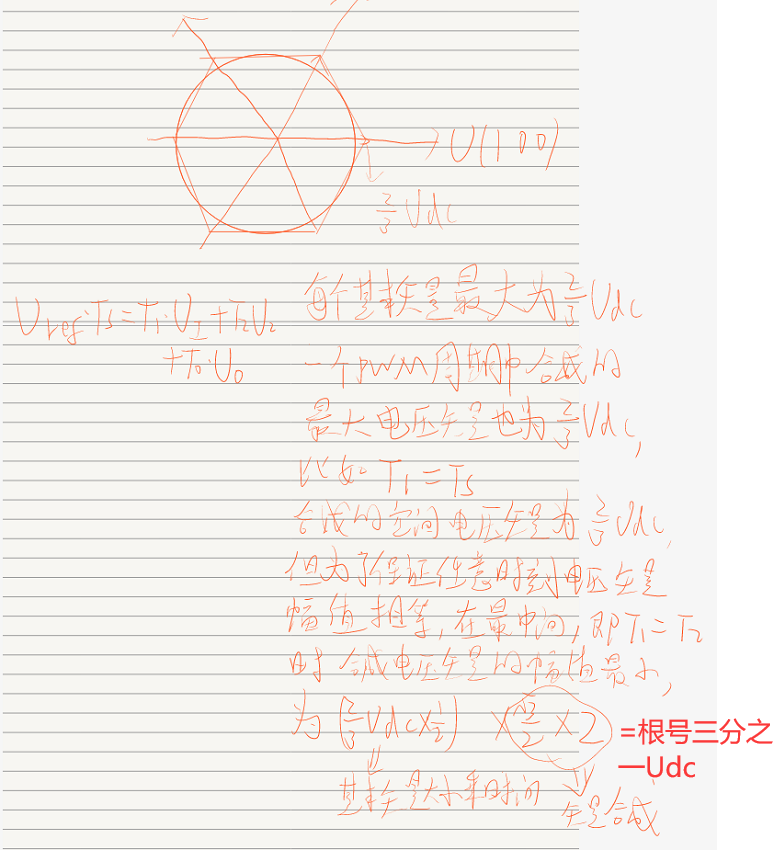 U(1 0 0)
2/3 Udc
Uref·Ts=T1·U1+T2U2
+T0·U0
每个基本矢量最大为2/3Udc
一个PWM周期中合成的
最大电压矢量也为2/3Udc,
比如 T1=Ts
合成的空间电压矢量为2/3Udc,
但为了保证任意时刻电压矢量
幅值相等,在最中间,即T1=T2
时合成电压矢量的幅值最小,
为(2/3Udc×1/2)×√3/2×2
=根号三分之
一Udc
基本矢量大小乘时间
矢量合成